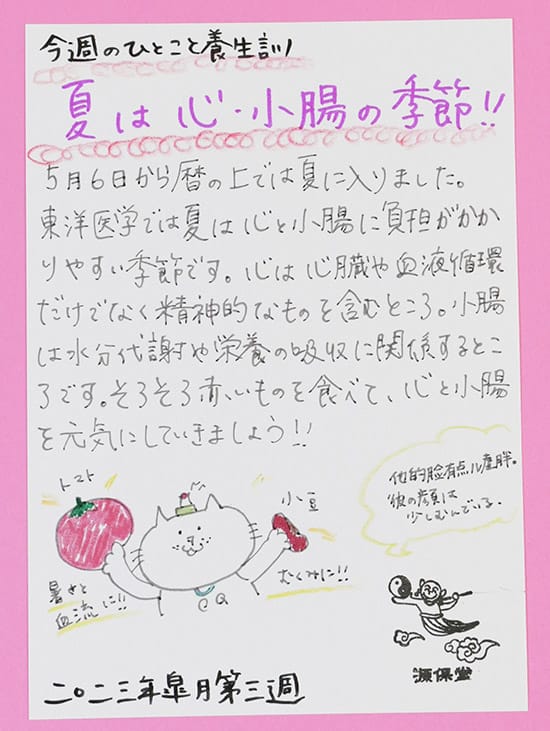 今週のひとこと養生訓
夏は心・小腸の季節!!
5月6日から暦の上では夏に入りました。
東洋医学では夏は心と小腸に負担がかか
りやすい季節です。心は心臓や血液循環
だけでなく精神的なものを含むところ。小腸
は水分代謝や栄養の吸収に関係するとこ
ろです。そろそろ赤いものを食べて、心と小腸
を元気にしていきましょう!!
トマト
小豆
暑さと
血流に!!
むくみに!!
他的脸有点儿虚胖。
彼の顔は
少しむくんでいる。
源保堂
二〇二三年皐月第三週